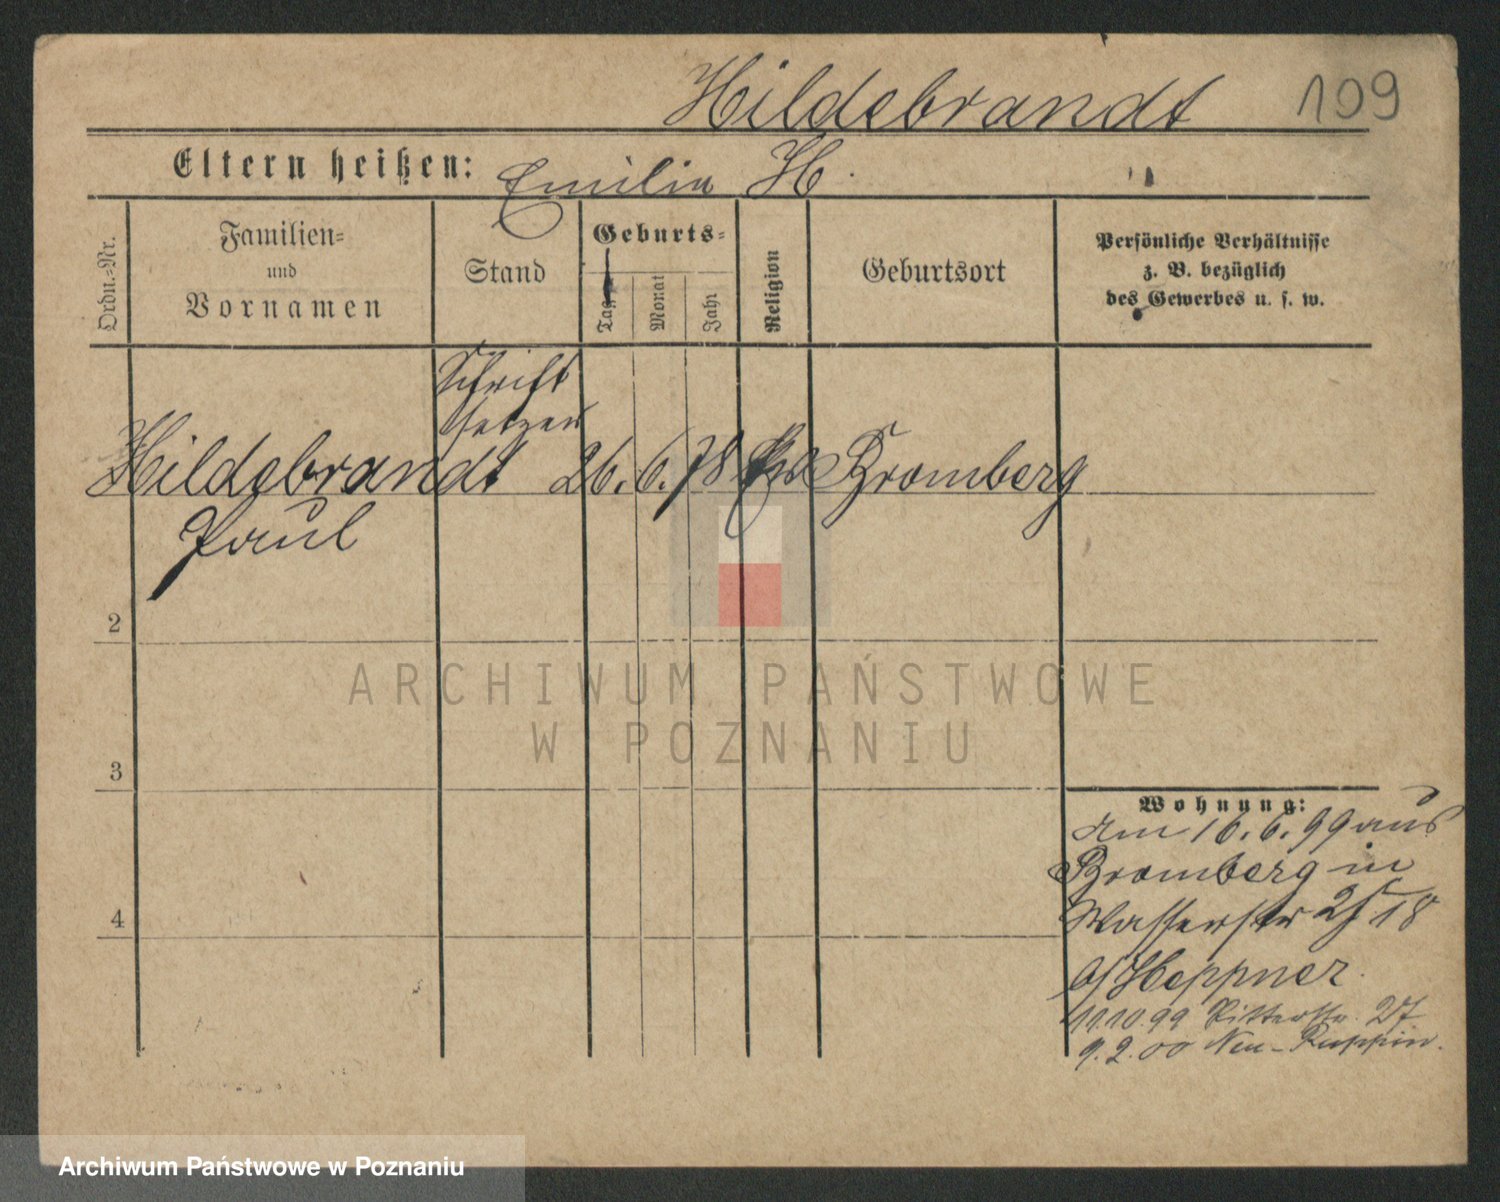 Hildebrandt 109
Eltern heißen: Emilia H.
Ordn.-Nr.
Familien-
und
Vornamen
Stand
Geburts-
Tag
Monat
Jahr
Religion
Geburtsort
Persönliche Verhältnisse
z. B. bezüglich
des Gewerbes u. s. w.
Schrift
setzer
Hildebrandt 26. 6. 78 Bromberg
Paul
2
3
4
Wohnung:
Am 16. 6. 99 aus
Bromberg in
Wasserstr 18
b/ Heppner.
11.10.99 Ritterstr. 27
9. 2. 00 Neu-Ruppin.
ARCHIWUM PAŃSTWOWE
W POZNANIU
Archiwum Państwowe w Poznaniu